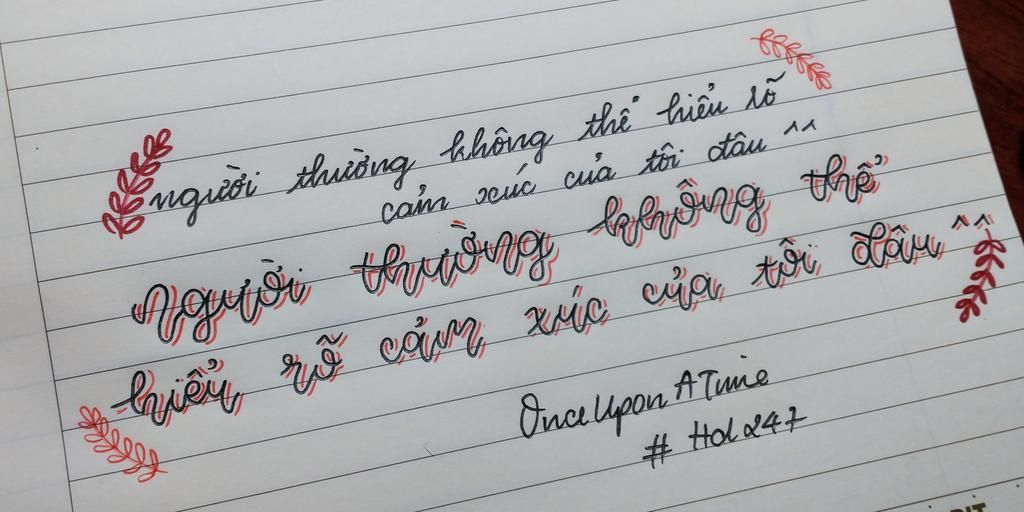 người thường không thể hiểu rõ
cảm xúc của tôi đâu ^^
Người thường không thể
hiểu rõ cảm xúc của tôi đâu ^^
Once Upon A Time
# Hol247